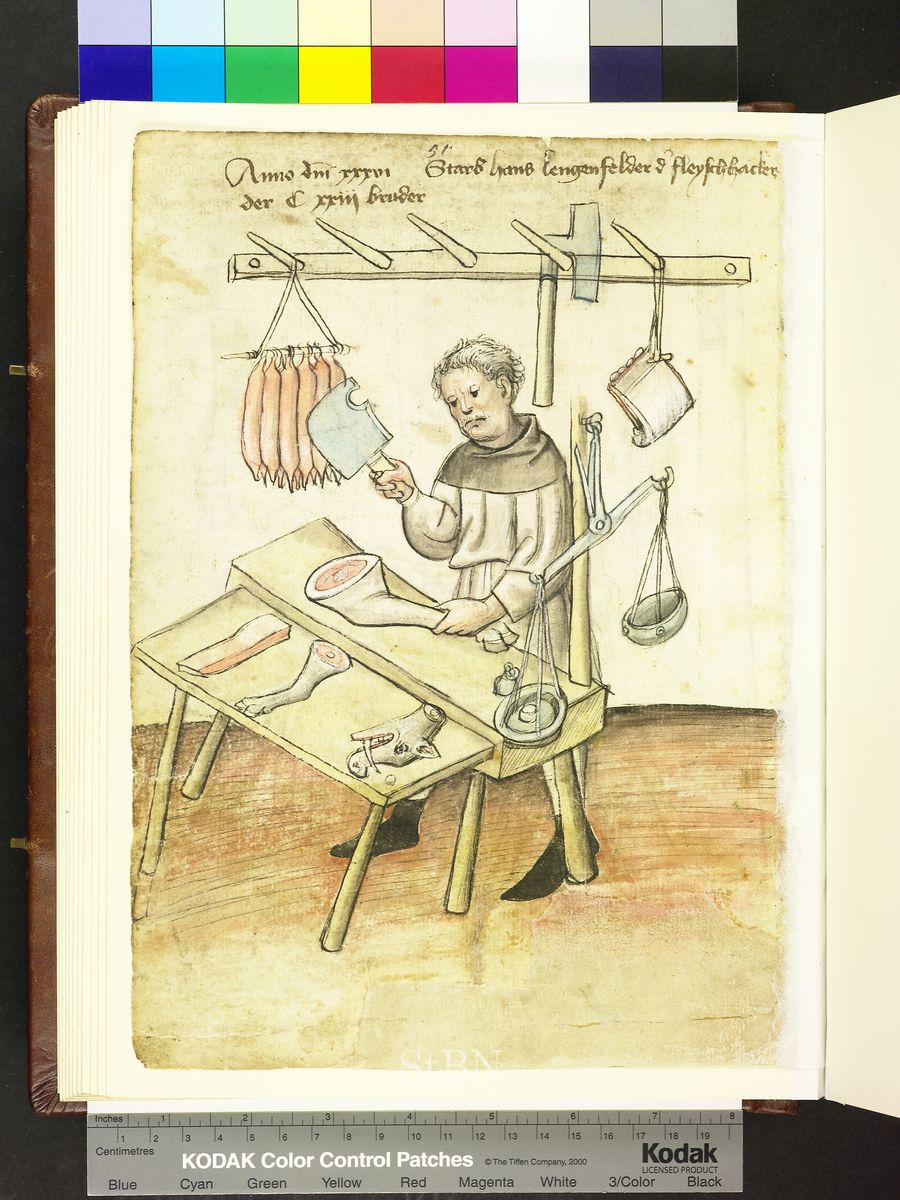 51
Anno dm̄ xxxvi Starb hans lengenfelder d' fleyschhacker
der C xxiii bruder
StBN
Inches 1 2 3 4 5 6 7 8
Centimetres 1 2 3 4 5 6 7 8 9 10 11 12 13 14 15 16 17 18 19
KODAK Color Control Patches © The Tiffen Company, 2000
Kodak
LICENSED PRODUCT
Blue Cyan Green Yellow Red Magenta White 3/Color Black